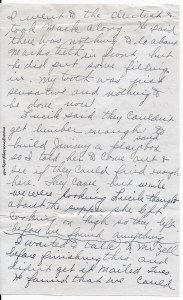 I went to the dentist &
took Mack along. He said
there was nothing to do about
Mack's teeth for now. But
he did put some filling
in my tooth was just
sensative and nothing to
be done now.
Lucile said they couldn't
get lumber enough to
build Jimmy a playbox
so I told her to come out &
see if they could find enough
here. They came, but while
we were looking Lucile thought
about the she left
cooking on high so left
before he found anything.
I wanted to talk to Mr.
before finishing this and
didn't get it mailed Tues.
He found that we could